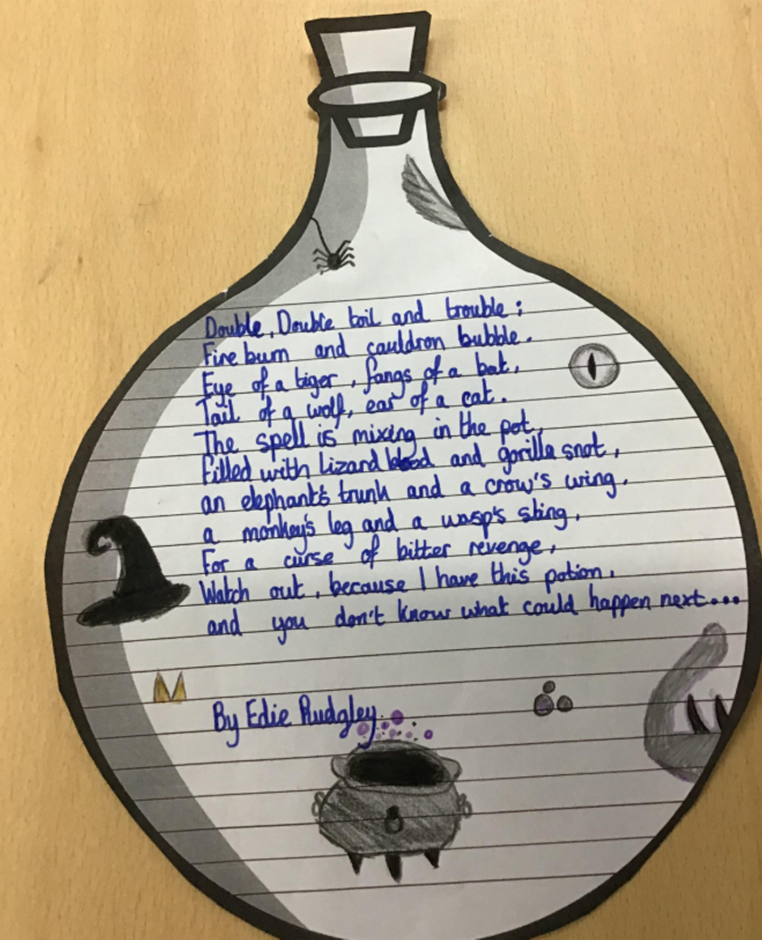 Double, Double toil and trouble;
Fire burn and cauldron bubble.
Eye of a tiger, fangs of a bat,
Tail of a wolf, ear of a cat.
The spell is mixing in the pot,
Filled with Lizard blood and gorilla snot,
an elephant's trunk and a crow's wing,
a monkey's leg and a wasp's sting,
For a curse of bitter revenge,
Watch out, because I have this potion,
and you don't know what could happen next...
By Edie Rudgley